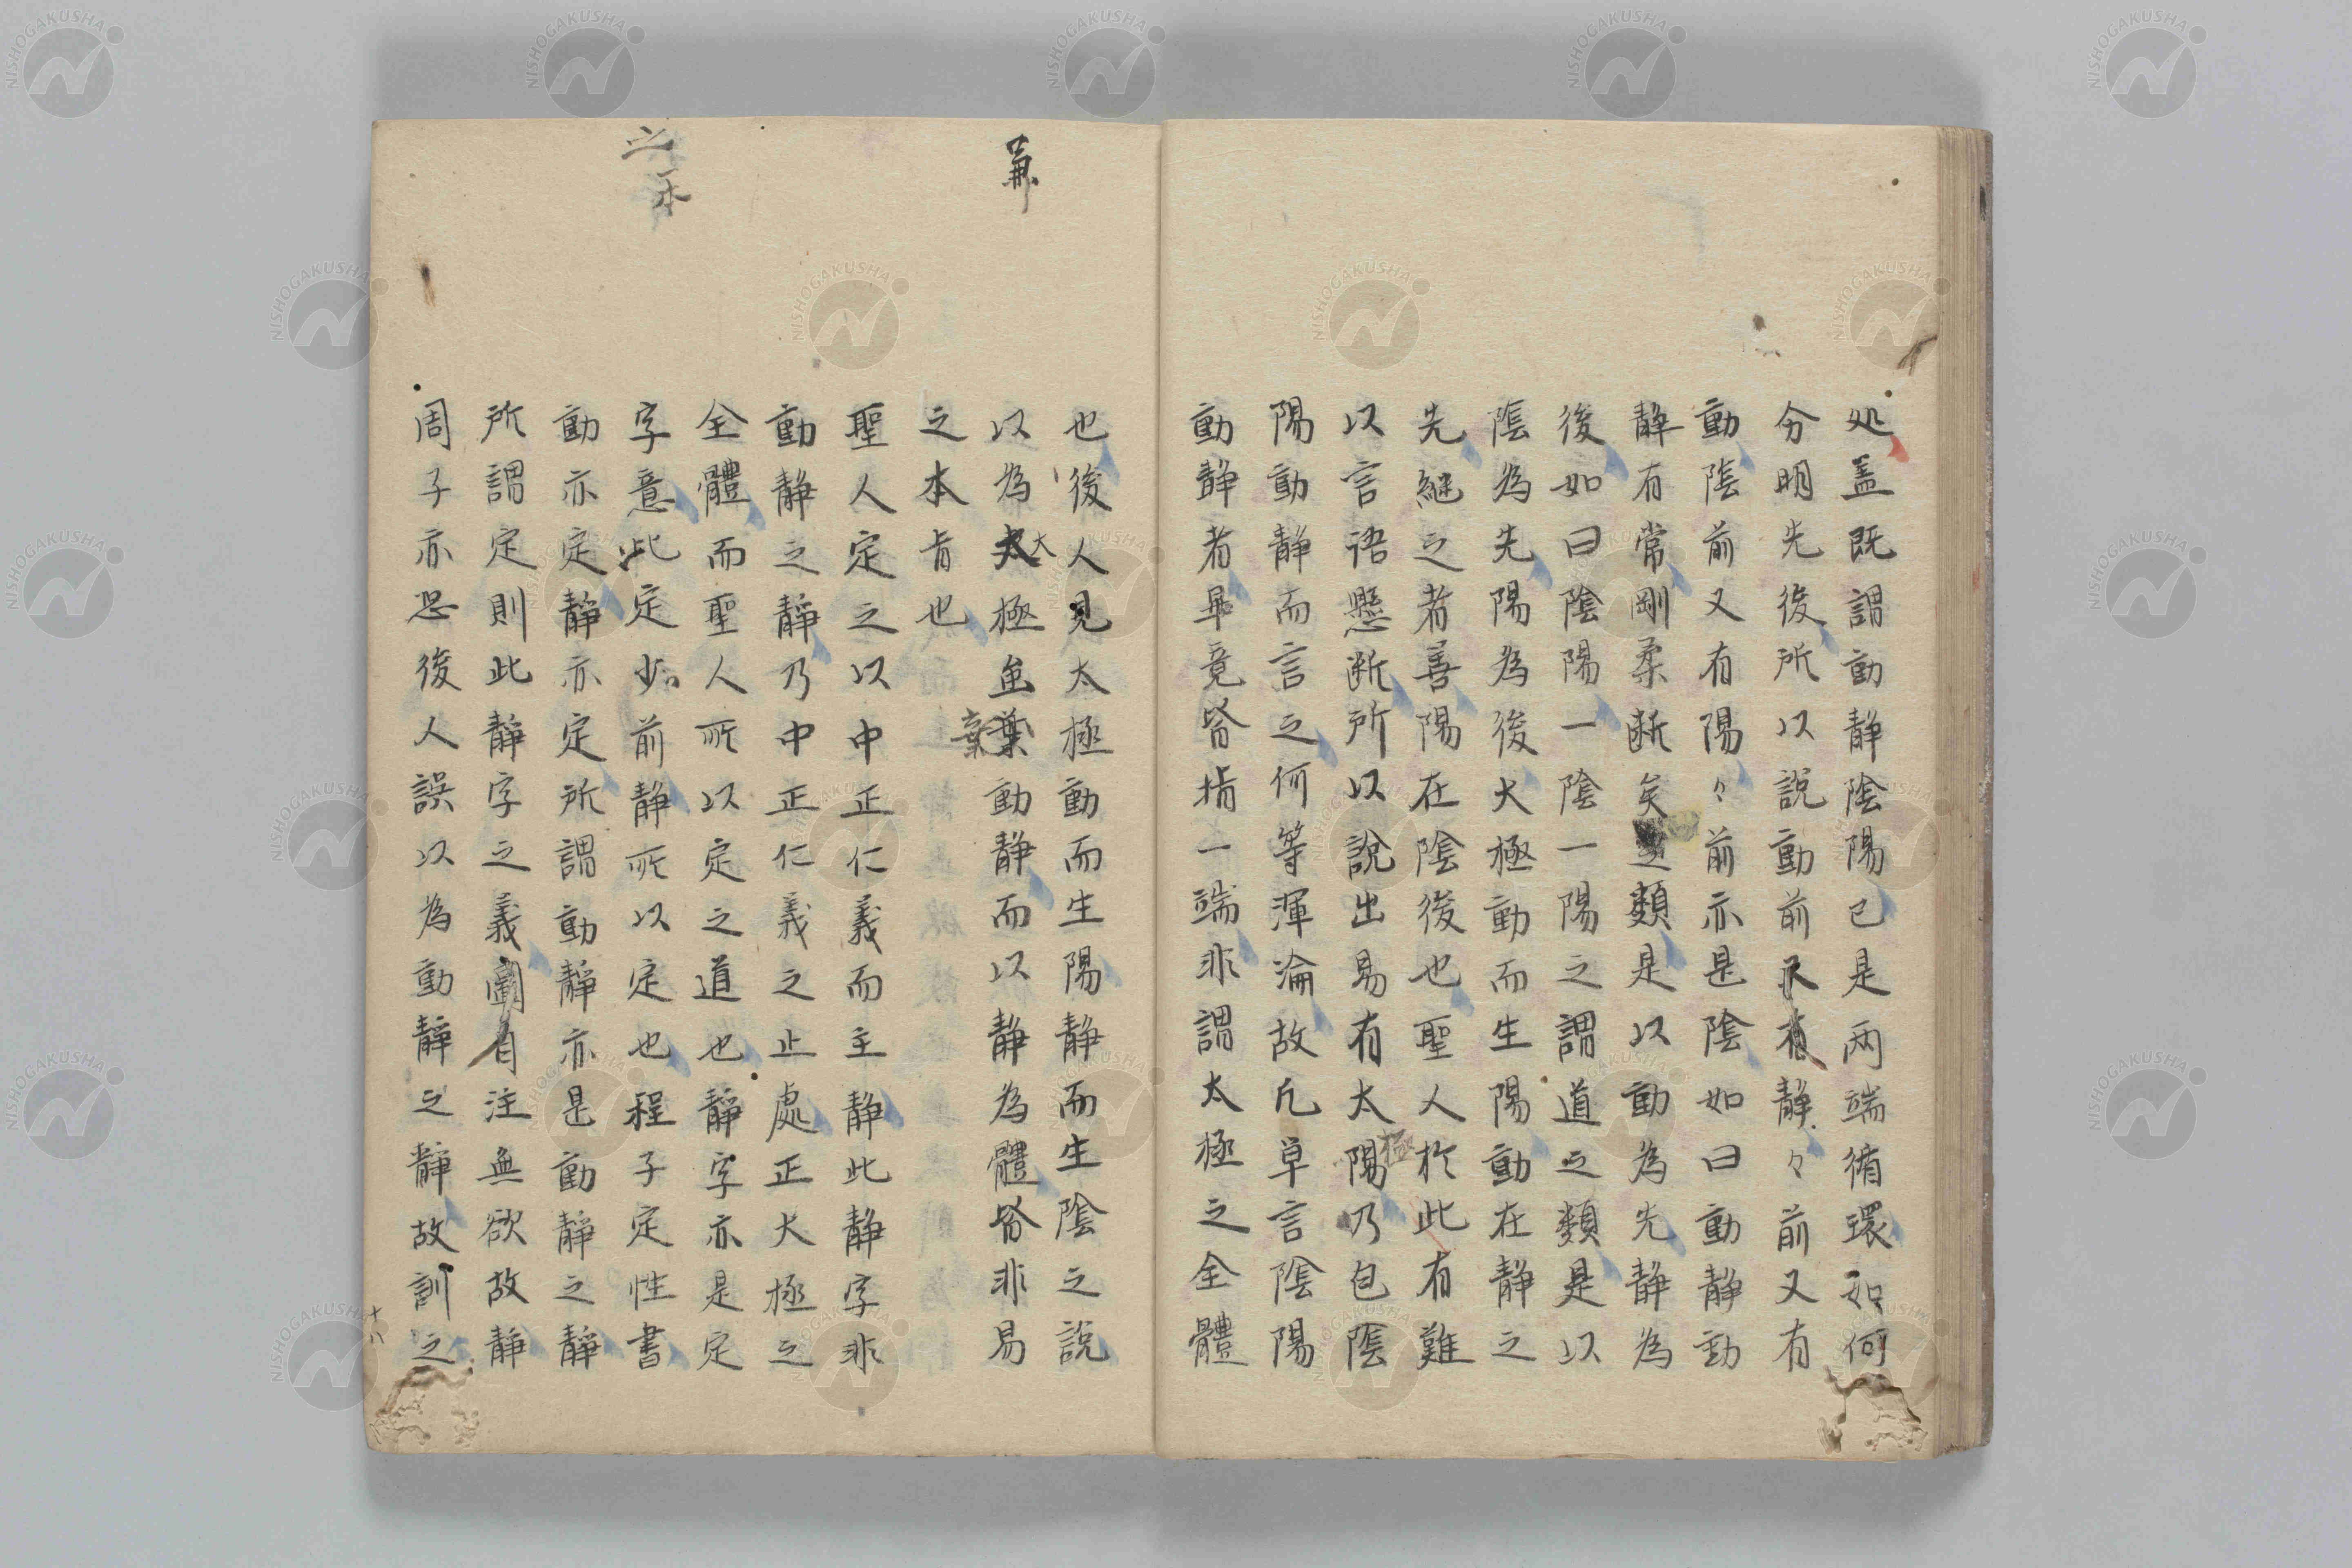 処盖既謂動静陰陽已是両端循環如何
分明先後所以説動前静々前又有
動陰前又有陽々前亦是陰如曰動静動
静有常剛柔断矣類是以動為先静為
後如曰陰陽一陰一陽之謂道之類是以
陰為先陽為後大極動而生陽動在静之
先継之者善陽在陰後也聖人於此有難
以言語懸断所以説出易有太陽乃包陰
極
陽動静而言之何等渾淪故凡単言陰陽
動静者畢竟皆指一端非謂太極之全體
也後人見太極動而生陽静而生陰之説
兼
以為太極並葉動静而以静為體皆非易
大
棄
之本旨也
聖人定之以中正仁義而主静此静字非
動静之静乃中正仁義之止處正大極之
全體而聖人所以定之道也静字亦是定
之
字意此定少前静所以定也程子定性書
動亦定静亦定所謂動静亦是動静之静
所謂定則此静字之義自注無欲故静
周子亦恐後人誤以為動静之静故訓之
十八
NISHOGAKUSHA